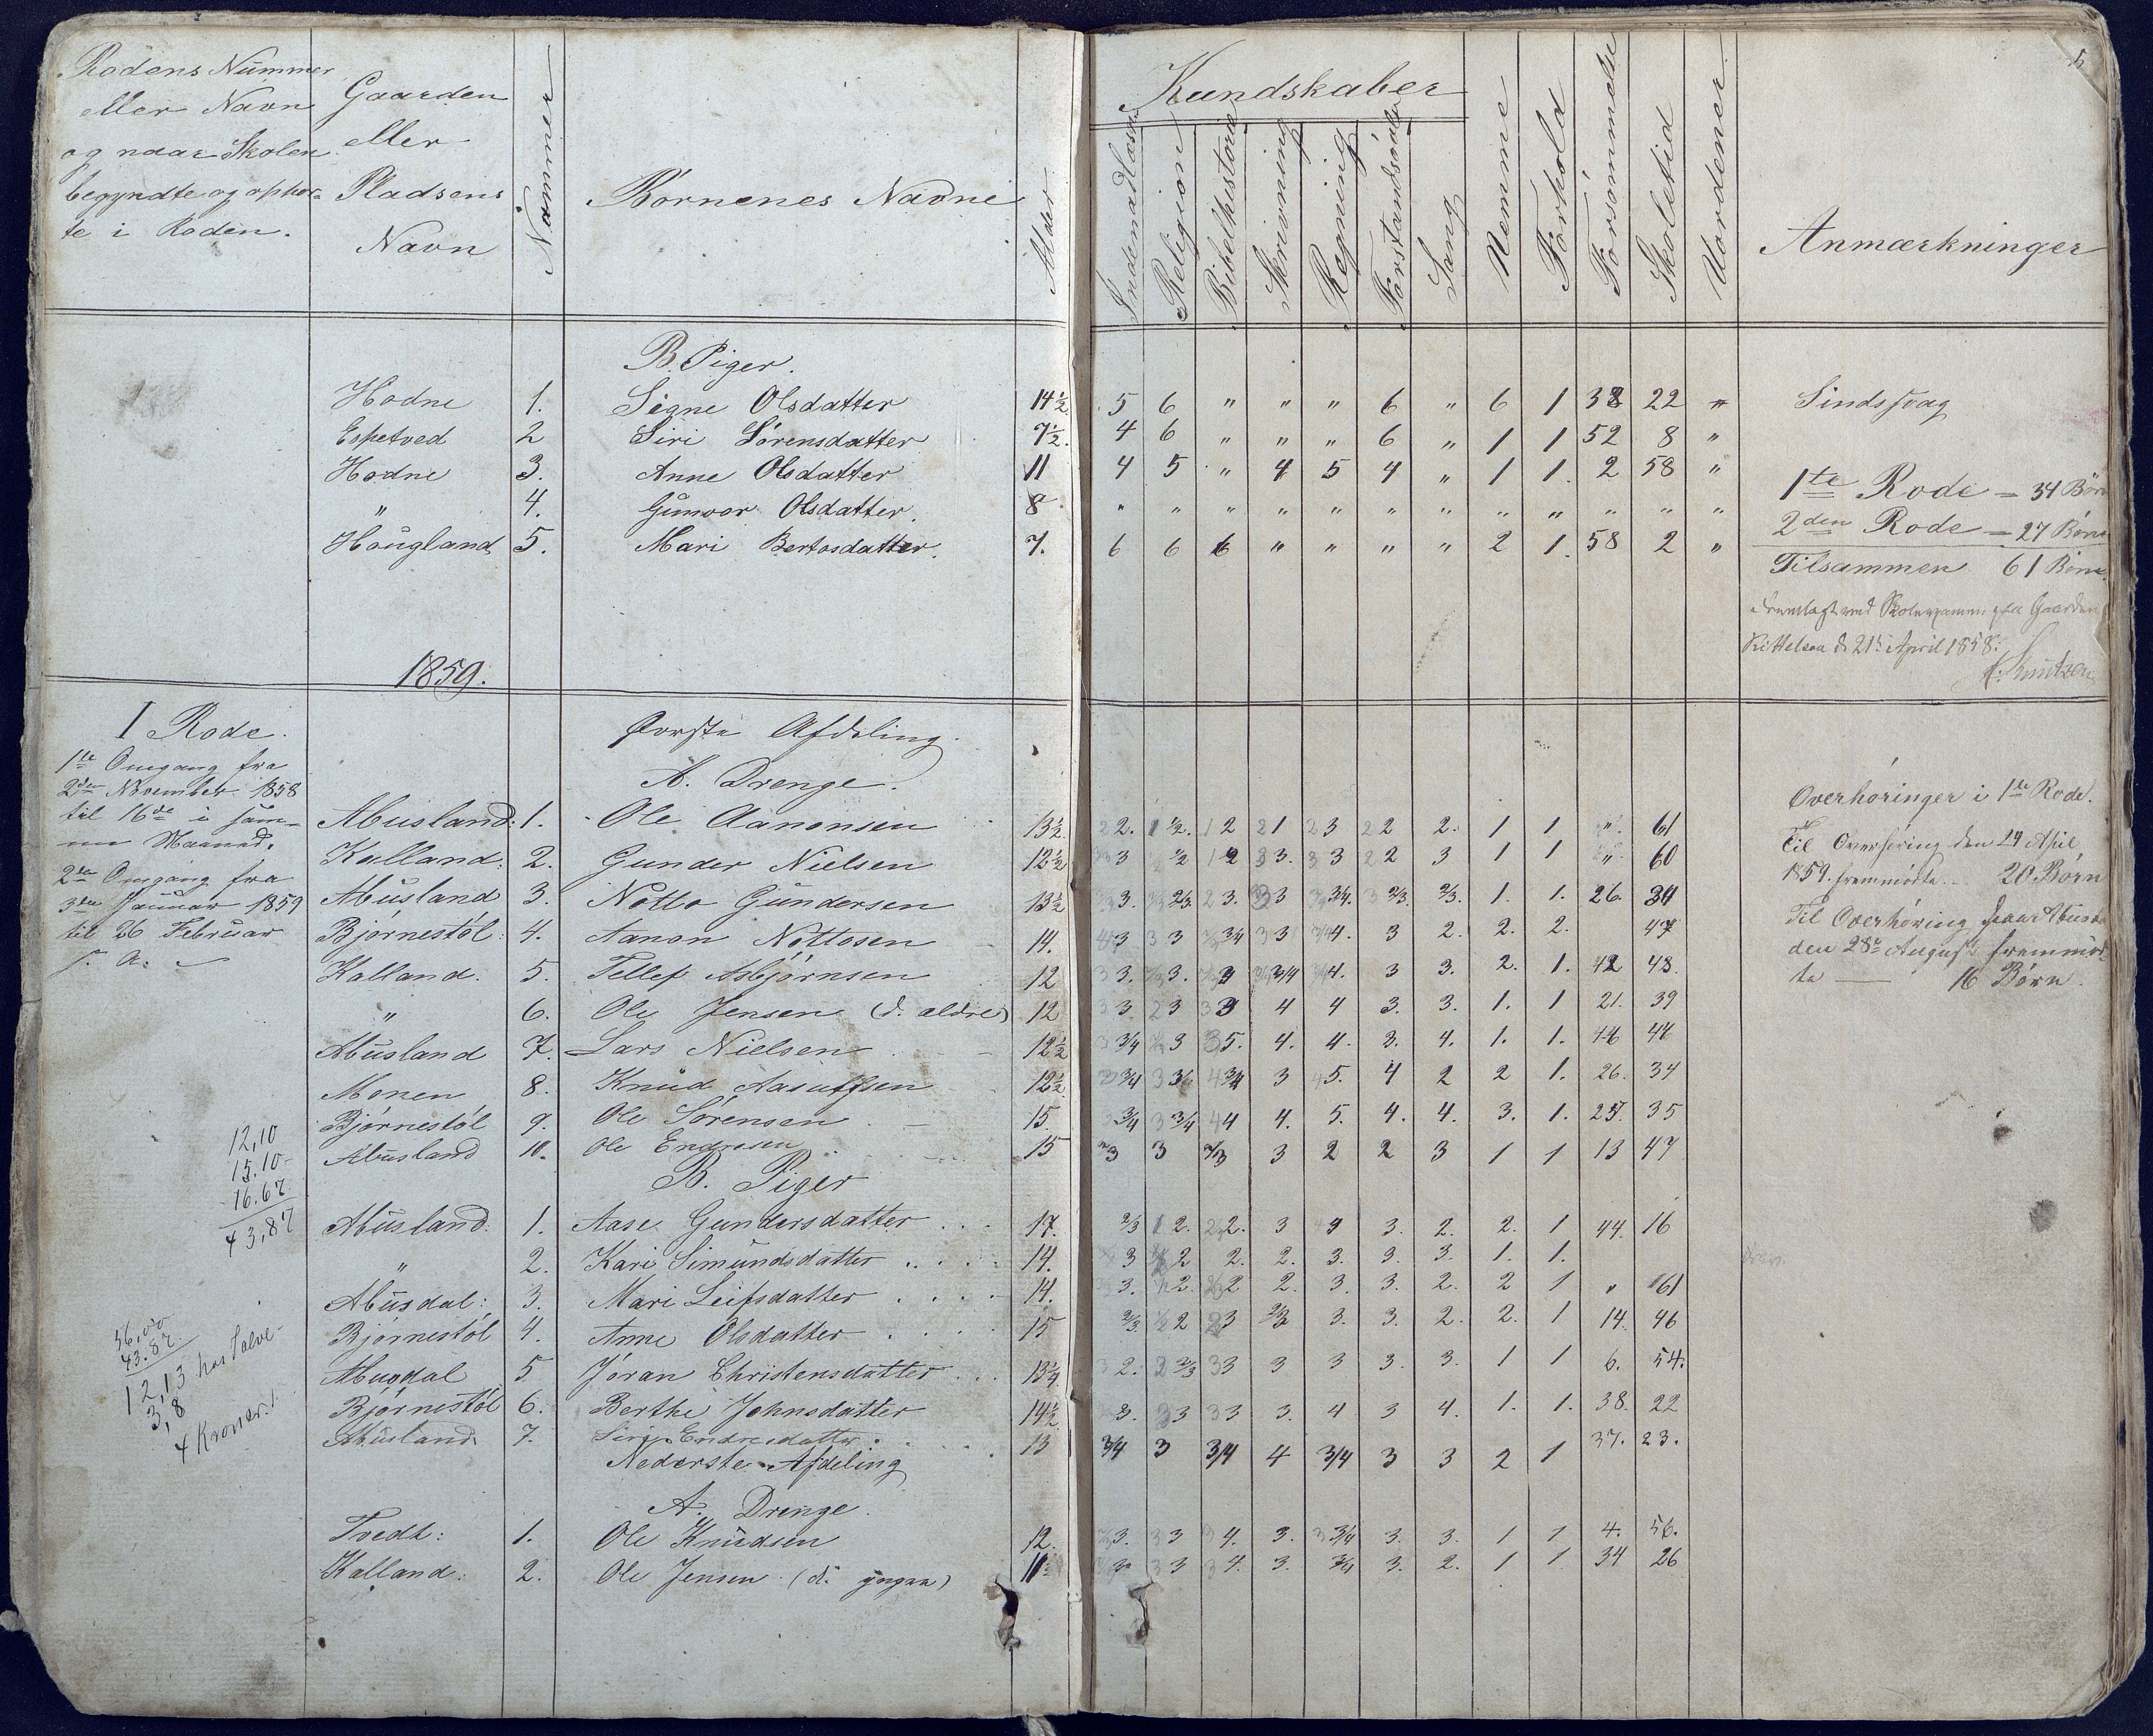 5
Rodens Nummer
eller Navn
og naar Skolen
begyndte og ophør-
te i Roden.
Gaarden
eller
Pladsens
Navn
Nummer
Børnenes Navne
Alder
Kundskaber
Indenadlæsn.
Religion
Bibelhistorie
Skrivning
Regning
Forstandsøvelse
Sang
Nemme
Forhold
Forsømmelse
Skoletid
Vurdener
Anmærkninger
B. Piger.
Hodne 1. Signe Olsdatter 14½ 5 6 " " " 6 " 6 1 38 22 " Sindssvag
Espetved 2 Siri Sørensdatter 7½. 4 6 " " " 6 " 1 1 52 8 "
Hodne 3. Anne Olsdatter 11 4 5 " 4 5 4 " 1 1. 2 58 "
" 4. Gunvor Olsdatter. 8 " " " " " " " " " " " "
Haugland 5. Mari Bertosdatter. 7. 6 6 6 " " " " 2 1. 58 2 "
1te Rode = 34 Børn
2den Rode = 27 Børn
Tilsammen 61 Børn.
Fremlagt ved Skoleexamen paa Gaarden
Kittelsaa d. 21de April 1858.
1859.
I Rode.
1te Omgang fra
2den November 1858
til 16de i sam-
me Maaned.
2den Omgang fra
3den Januar 1859
til 26 Februar
s. A.
Øverste Afdeling.
A. Drenge.
Abusland: 1. Ole Aanonsen 13½ 2. 1½. 2 1 3 2 2. 1 1 " 61
Kalland: 2. Gunder Nielsen 12½ 3 ½ 2 3. 3 2 3 1 1 " 60
Abusland 3. Notto Gundersen 13½ 3. 2/3. 3. 3 3/4. 2/3. 2/3. 1. 1. 26. 34
Bjørnestøl: 4. Aanon Nottosen 14. 3 3 3/4 3 4. 3 2. 2. 2. 47
Kalland. 5. Tellef Asbjørnsen 12 3. 3. 4 3/4 4. 3 3. 2. 1. 12 48.
" 6. Ole Jensen (d. ældre) 12 3. 3 3 4 4 3. 3. 1. 1 21. 39
Abusland 7. Lars Nielsen 12½ 3/4 3 5. 4. 4. 3. 4. 1. 1. 14 46
Monen 8. Knud Aasulfsen 12½. 3/4 3/4 3/4 3 5. 4 2 2 1. 26. 34
Bjørnestøl 9. Ole Sørensen 15. 3/4 3/4 4 4. 5. 4. 4. 3. 1. 25. 35
Abusland 10. Ole Endresen 15 3 3 2/3 3 2 2 3 1 1 13 47
Overhøringer i 1te Rode.
Til Overhøring den 24 April
1859. fremmødte 20 Børn
Til Overhøring paa Abusla
den 28de August fremmød-
te — 16 Børn.
B. Piger
Abusland: 1. Aase Gundersdatter 17. 2/3 2. 2. 3 4 3. 2. 2. 1 44. 16
" 2. Kari Simundsdatter 14. 3 2 2. 2. 3. 3. 3. 1. 1.
Abusdal: 3. Mari Leifsdatter 14. 3. 2. 2 2. 3. 3. 2. 2 1 " 61
Bjørnestøl 4. Anne Olsdatter 15 2/3. 2 3 2/3 3. 3. 2. 2. 1 14. 46
Abusdal 5. Jøran Christensdatter 13¼. 2. 2/3 3 3 3 3. 3. 1 1 6. 54.
Bjørnestøl 6. Berthe Johnsdatter 14½ 3. 3 3 3. 4 3 4. 1. 1. 38. 22
Abusland. 7. Siri Endresdatter 13 3/4 3 3/4 4 3/4 3 3 2 1 37. 23.
Nederste Afdeling
A. Drenge.
Tvedt: 1. Ole Knudsen 12. 3. 3 4. 3. 3/4 3. 3. 1 1 4. 56.
Kalland: 2. Ole Jensen (d. yngre) 11 3 3 4. 3. 3/4 3. 2. 1 1 34 26
12,10
15.10
16.67
43,87
56,00
43.87
12,13 hos Salve
3,8
4 Kroner.